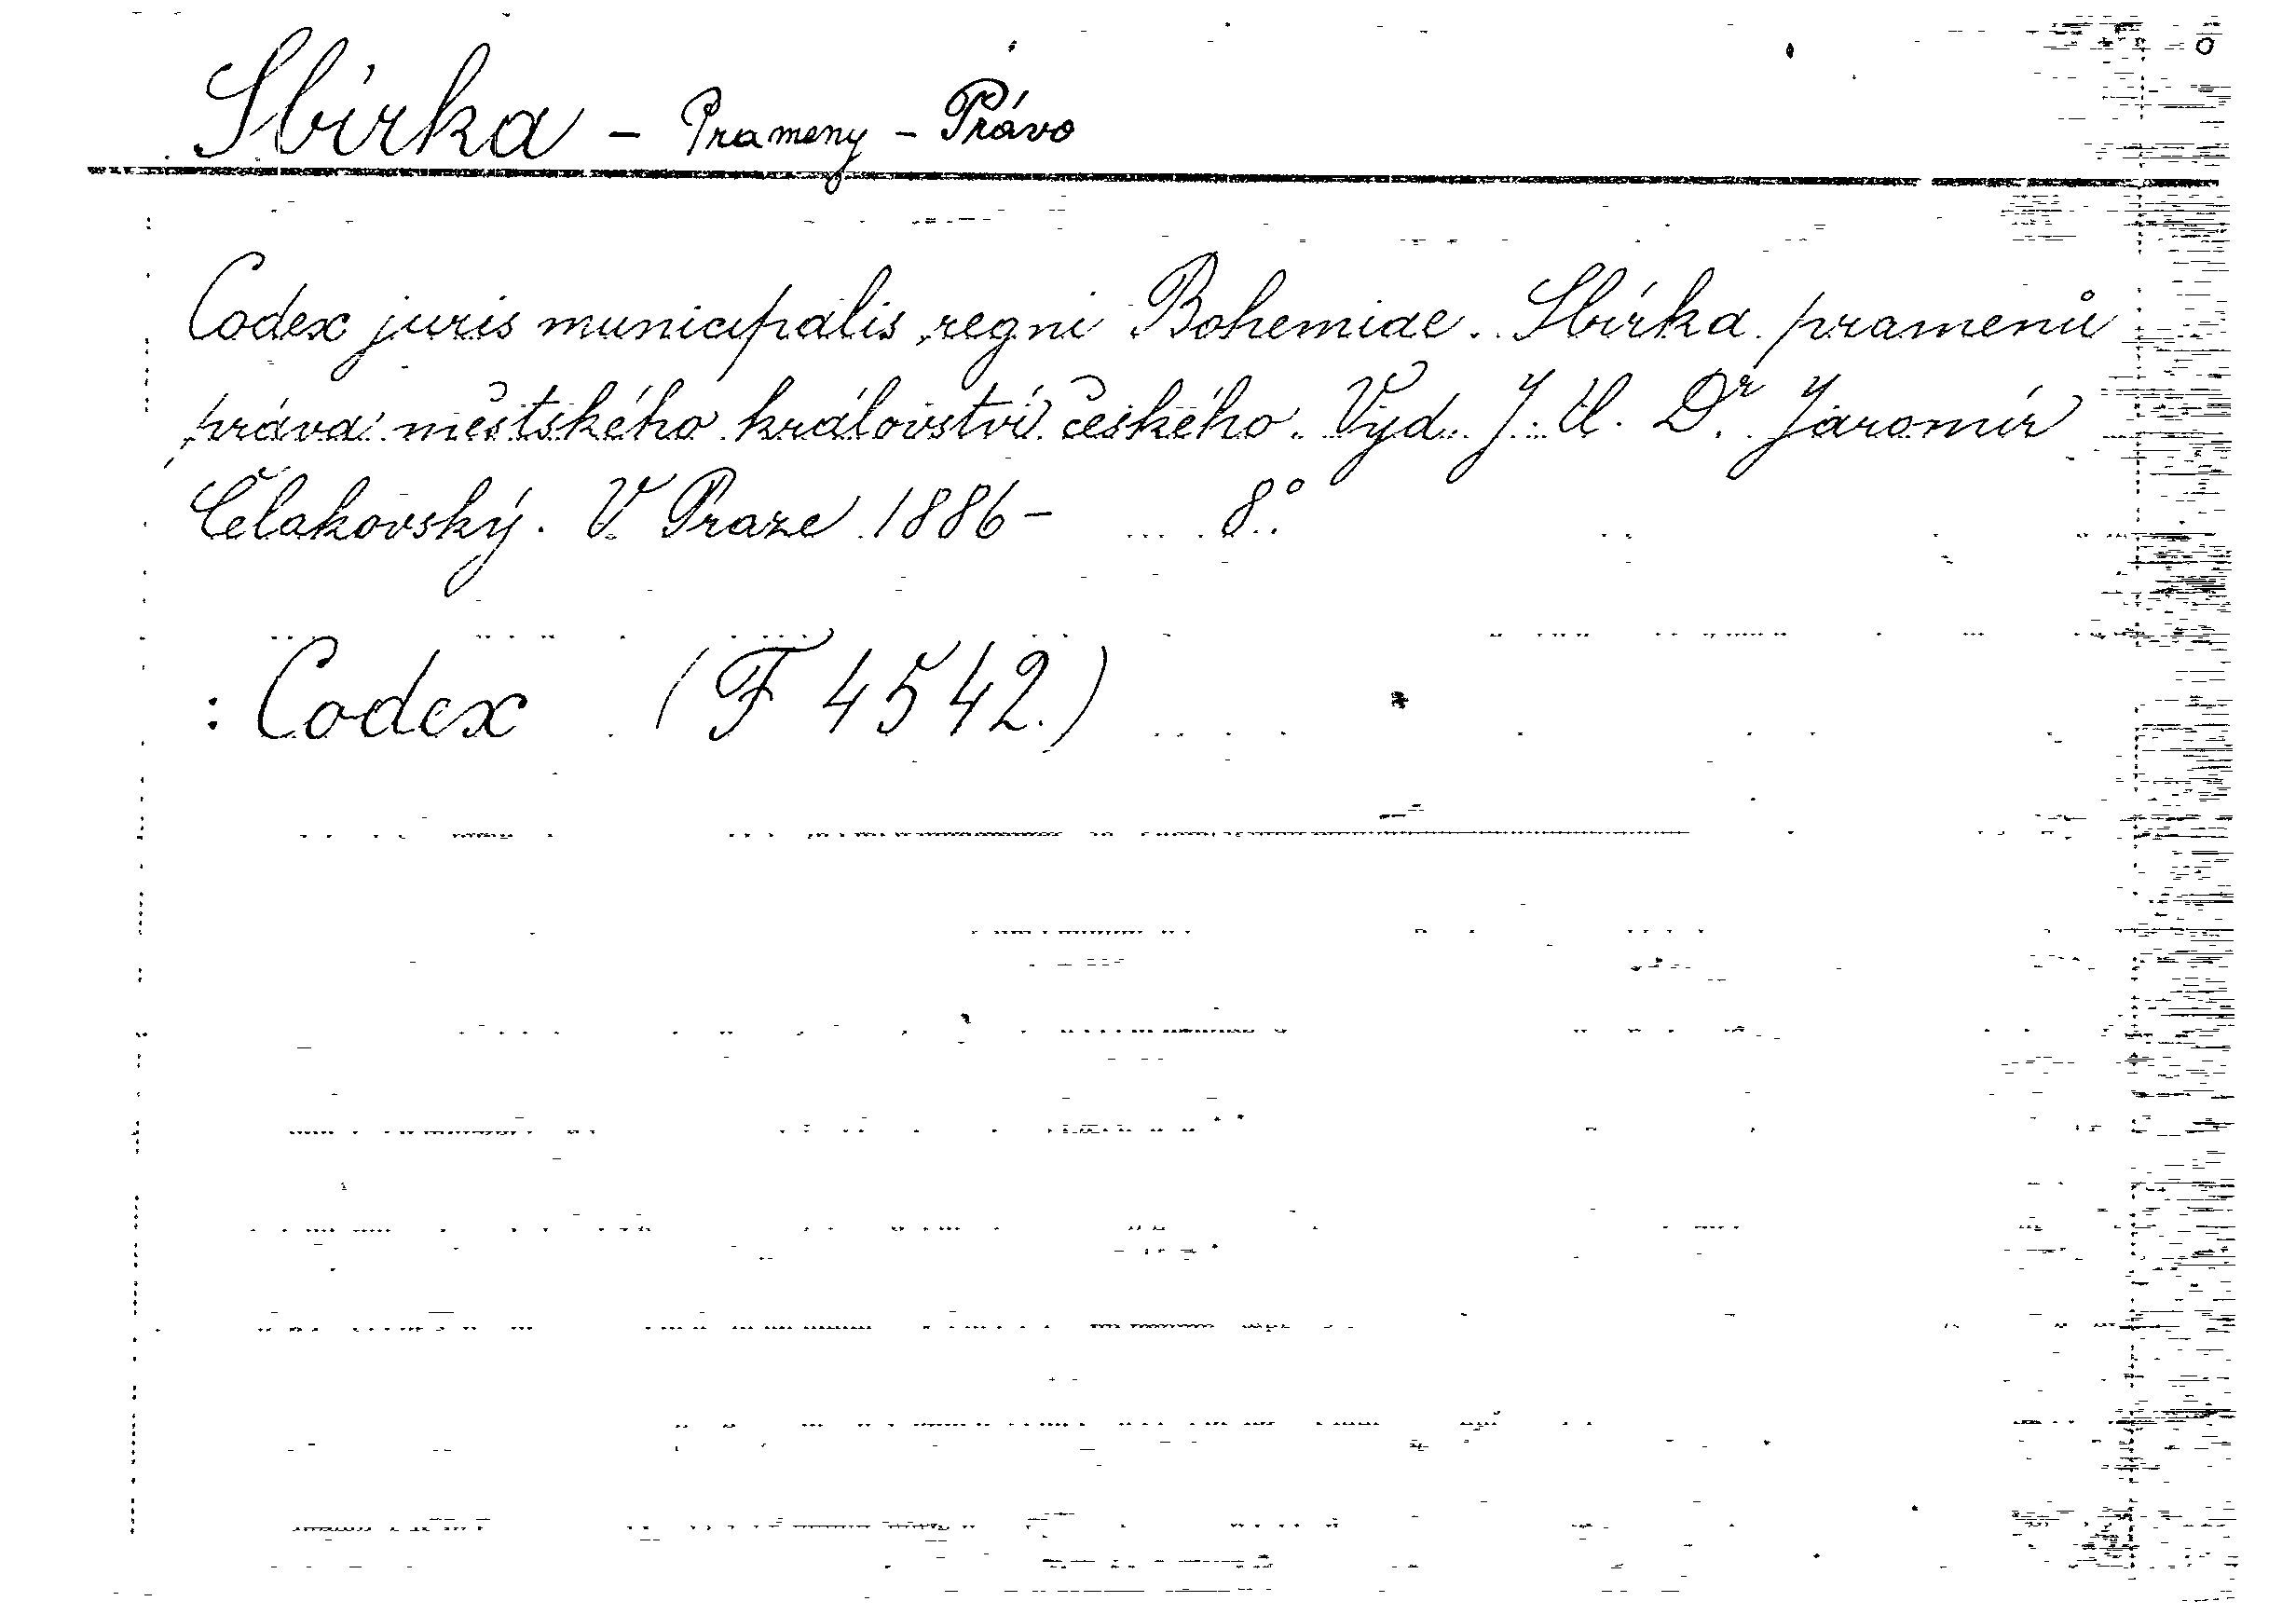 Sbírka – Prameny – Právo
Codex juris municipalis regni Bohemiae. Sbírka pramenů
práva městského království českého. Vyd. J. U. Dr. Jaromír
Čelakovský. V Praze 1886– 8°.
: Codex (F 4542.)